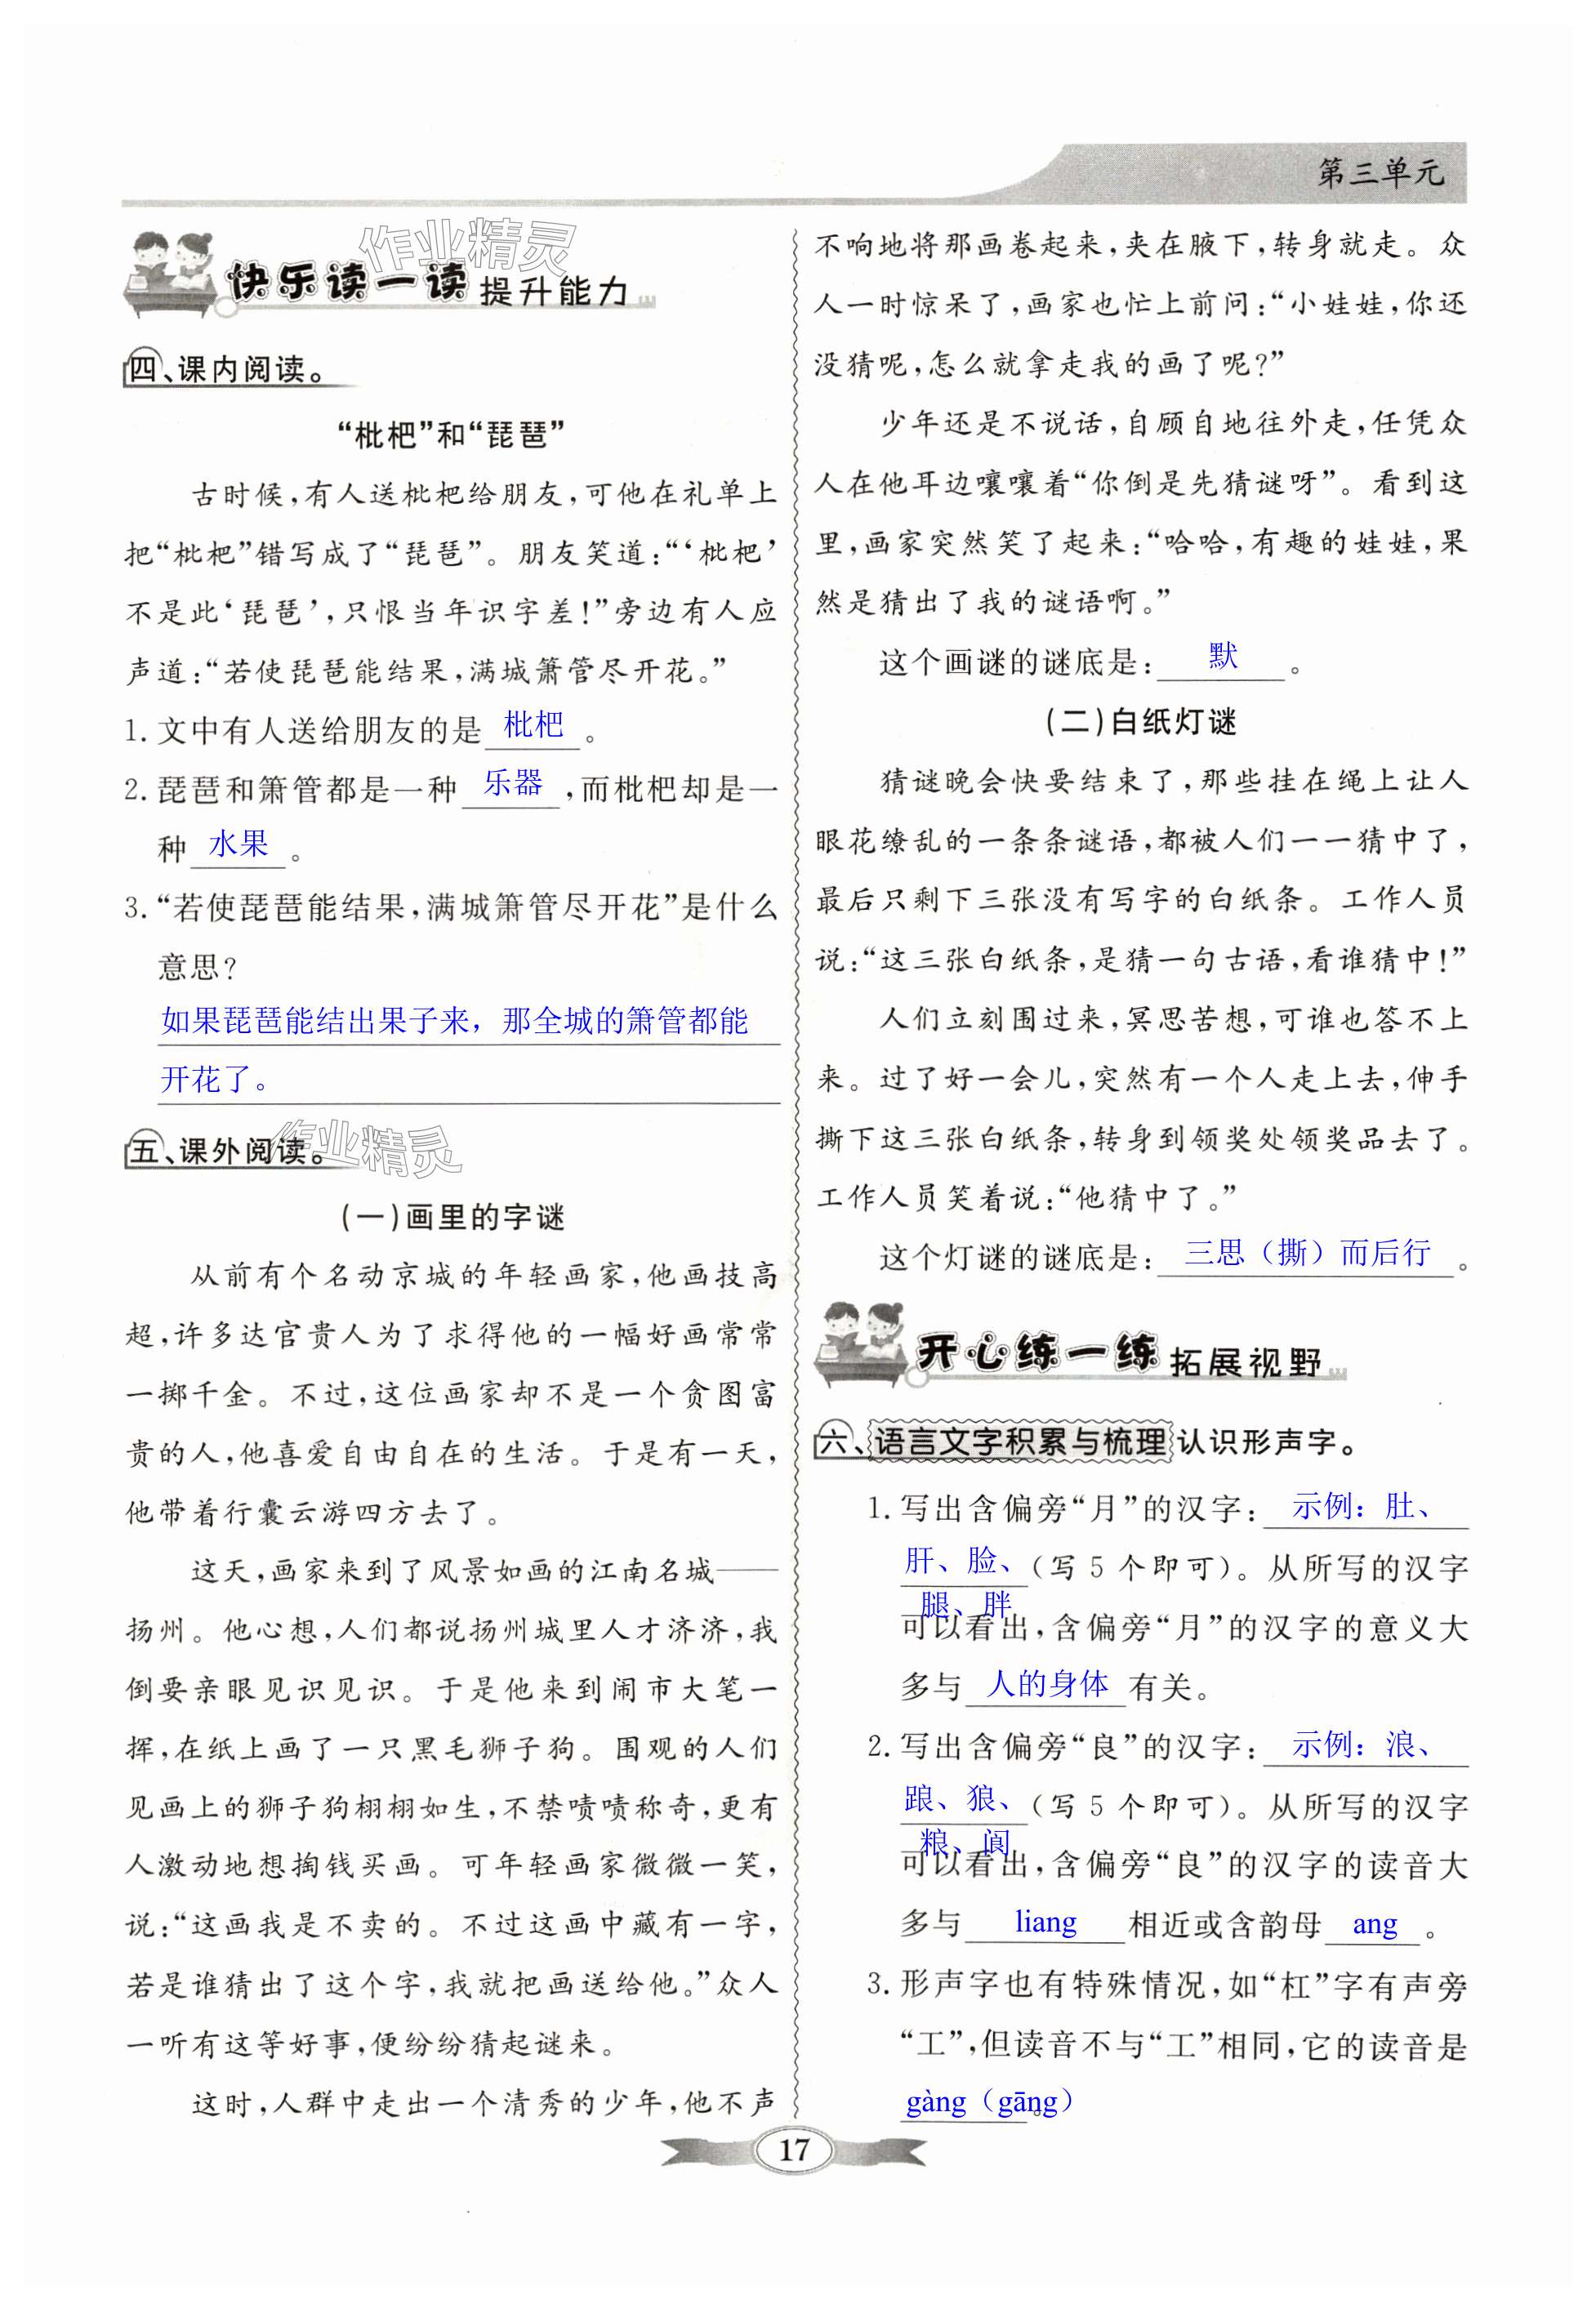 第三单元
作业精灵
快乐读一读 提升能力
四、课内阅读。
“枇杷”和“琵琶”
古时候,有人送枇杷给朋友,可他在礼单上
把“枇杷”错写成了“琵琶”。朋友笑道:“‘枇杷’
不是此‘琵琶’,只恨当年识字差!”旁边有人应
声道:“若使琵琶能结果,满城箫管尽开花。”
1. 文中有人送给朋友的是 枇杷 。
2. 琵琶和箫管都是一种 乐器 ,而枇杷却是一
种 水果 。
3. “若使琵琶能结果,满城箫管尽开花”是什么
意思?
如果琵琶能结出果子来，那全城的箫管都能
开花了。
五、课外阅读。
作业精灵
(一)画里的字谜
从前有个名动京城的年轻画家,他画技高
超,许多达官贵人为了求得他的一幅好画常常
一掷千金。不过,这位画家却不是一个贪图富
贵的人,他喜爱自由自在的生活。于是有一天,
他带着行囊云游四方去了。
这天,画家来到了风景如画的江南名城——
扬州。他心想,人们都说扬州城里人才济济,我
倒要亲眼见识见识。于是他来到闹市大笔一
挥,在纸上画了一只黑毛狮子狗。围观的人们
见画上的狮子狗栩栩如生,不禁啧啧称奇,更有
人激动地想掏钱买画。可年轻画家微微一笑,
说:“这画我是不卖的。不过这画中藏有一字,
若是谁猜出了这个字,我就把画送给他。”众人
一听有这等好事,便纷纷猜起谜来。
这时,人群中走出一个清秀的少年,他不声
不响地将那画卷起来,夹在腋下,转身就走。众
人一时惊呆了,画家也忙上前问:“小娃娃,你还
没猜呢,怎么就拿走我的画了呢?”
少年还是不说话,自顾自地往外走,任凭众
人在他耳边嚷嚷着“你倒是先猜谜呀”。看到这
里,画家突然笑了起来:“哈哈,有趣的娃娃,果
然是猜出了我的谜语啊。”
这个画谜的谜底是: 默 。
(二)白纸灯谜
猜谜晚会快要结束了,那些挂在绳上让人
眼花缭乱的一条条谜语,都被人们一一猜中了,
最后只剩下三张没有写字的白纸条。工作人员
说:“这三张白纸条,是猜一句古语,看谁猜中!”
人们立刻围过来,冥思苦想,可谁也答不上
来。过了好一会儿,突然有一个人走上去,伸手
撕下这三张白纸条,转身到领奖处领奖品去了。
工作人员笑着说:“他猜中了。”
这个灯谜的谜底是: 三思（撕）而后行 。
开心练一练 拓展视野
六、语言文字积累与梳理 认识形声字。
1. 写出含偏旁“月”的汉字: 示例：肚、
肝、脸、(写 5 个即可)。从所写的汉字
腿、胖
可以看出,含偏旁“月”的汉字的意义大
多与 人的身体 有关。
2. 写出含偏旁“良”的汉字: 示例：浪、
踉、狼、(写 5 个即可)。从所写的汉字
粮、阆
可以看出,含偏旁“良”的汉字的读音大
多与 liang 相近或含韵母 ang 。
3. 形声字也有特殊情况,如“杠”字有声旁
“工”,但读音不与“工”相同,它的读音是
gàng（gāng） 。
17